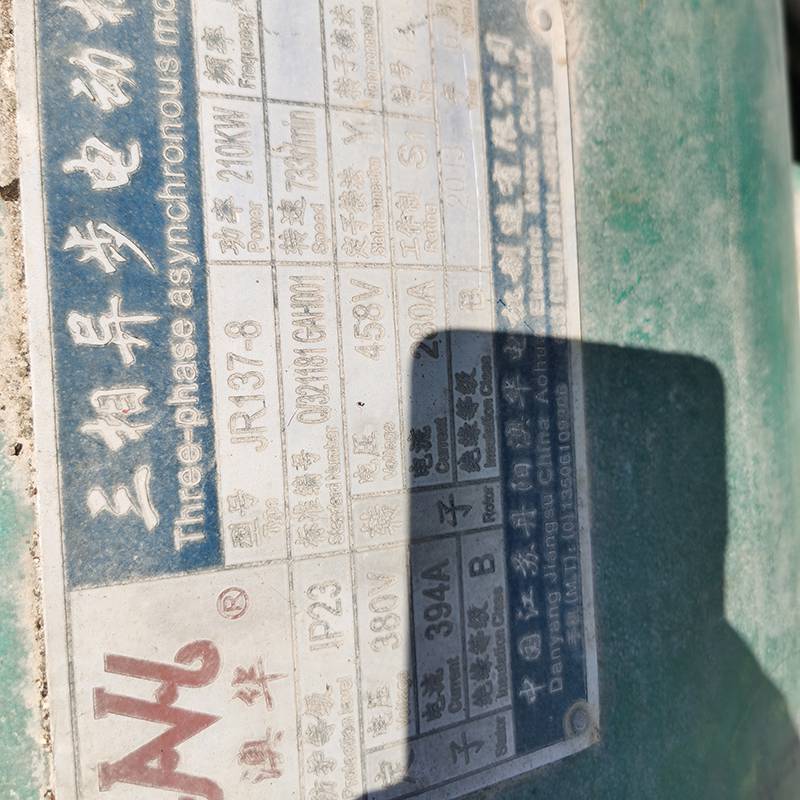 三相异步电动机
Three-phase asynchronous mo
澳华®
型号 JR137-8 功率 210KW 频率
Type Power Frequency
标准编号 Q/321181 CAH001 转速 733r/min
Standard Number Speed
防护等级 IP23
Protection level
电压 380V 转 电压 458V 定子接法 Y 转子接法
Voltage
电流 394A 子 电流 280A 工作制 S1 编号
Current Current
子 绝缘等级 B Rotor 绝缘等级 B 2019 年 月
Stator Insulation Class Insulation Class
中国江苏丹阳澳华电机制造有限公司
Danyang Jiangsu China Aohua Electric Motor Co.,Ltd.